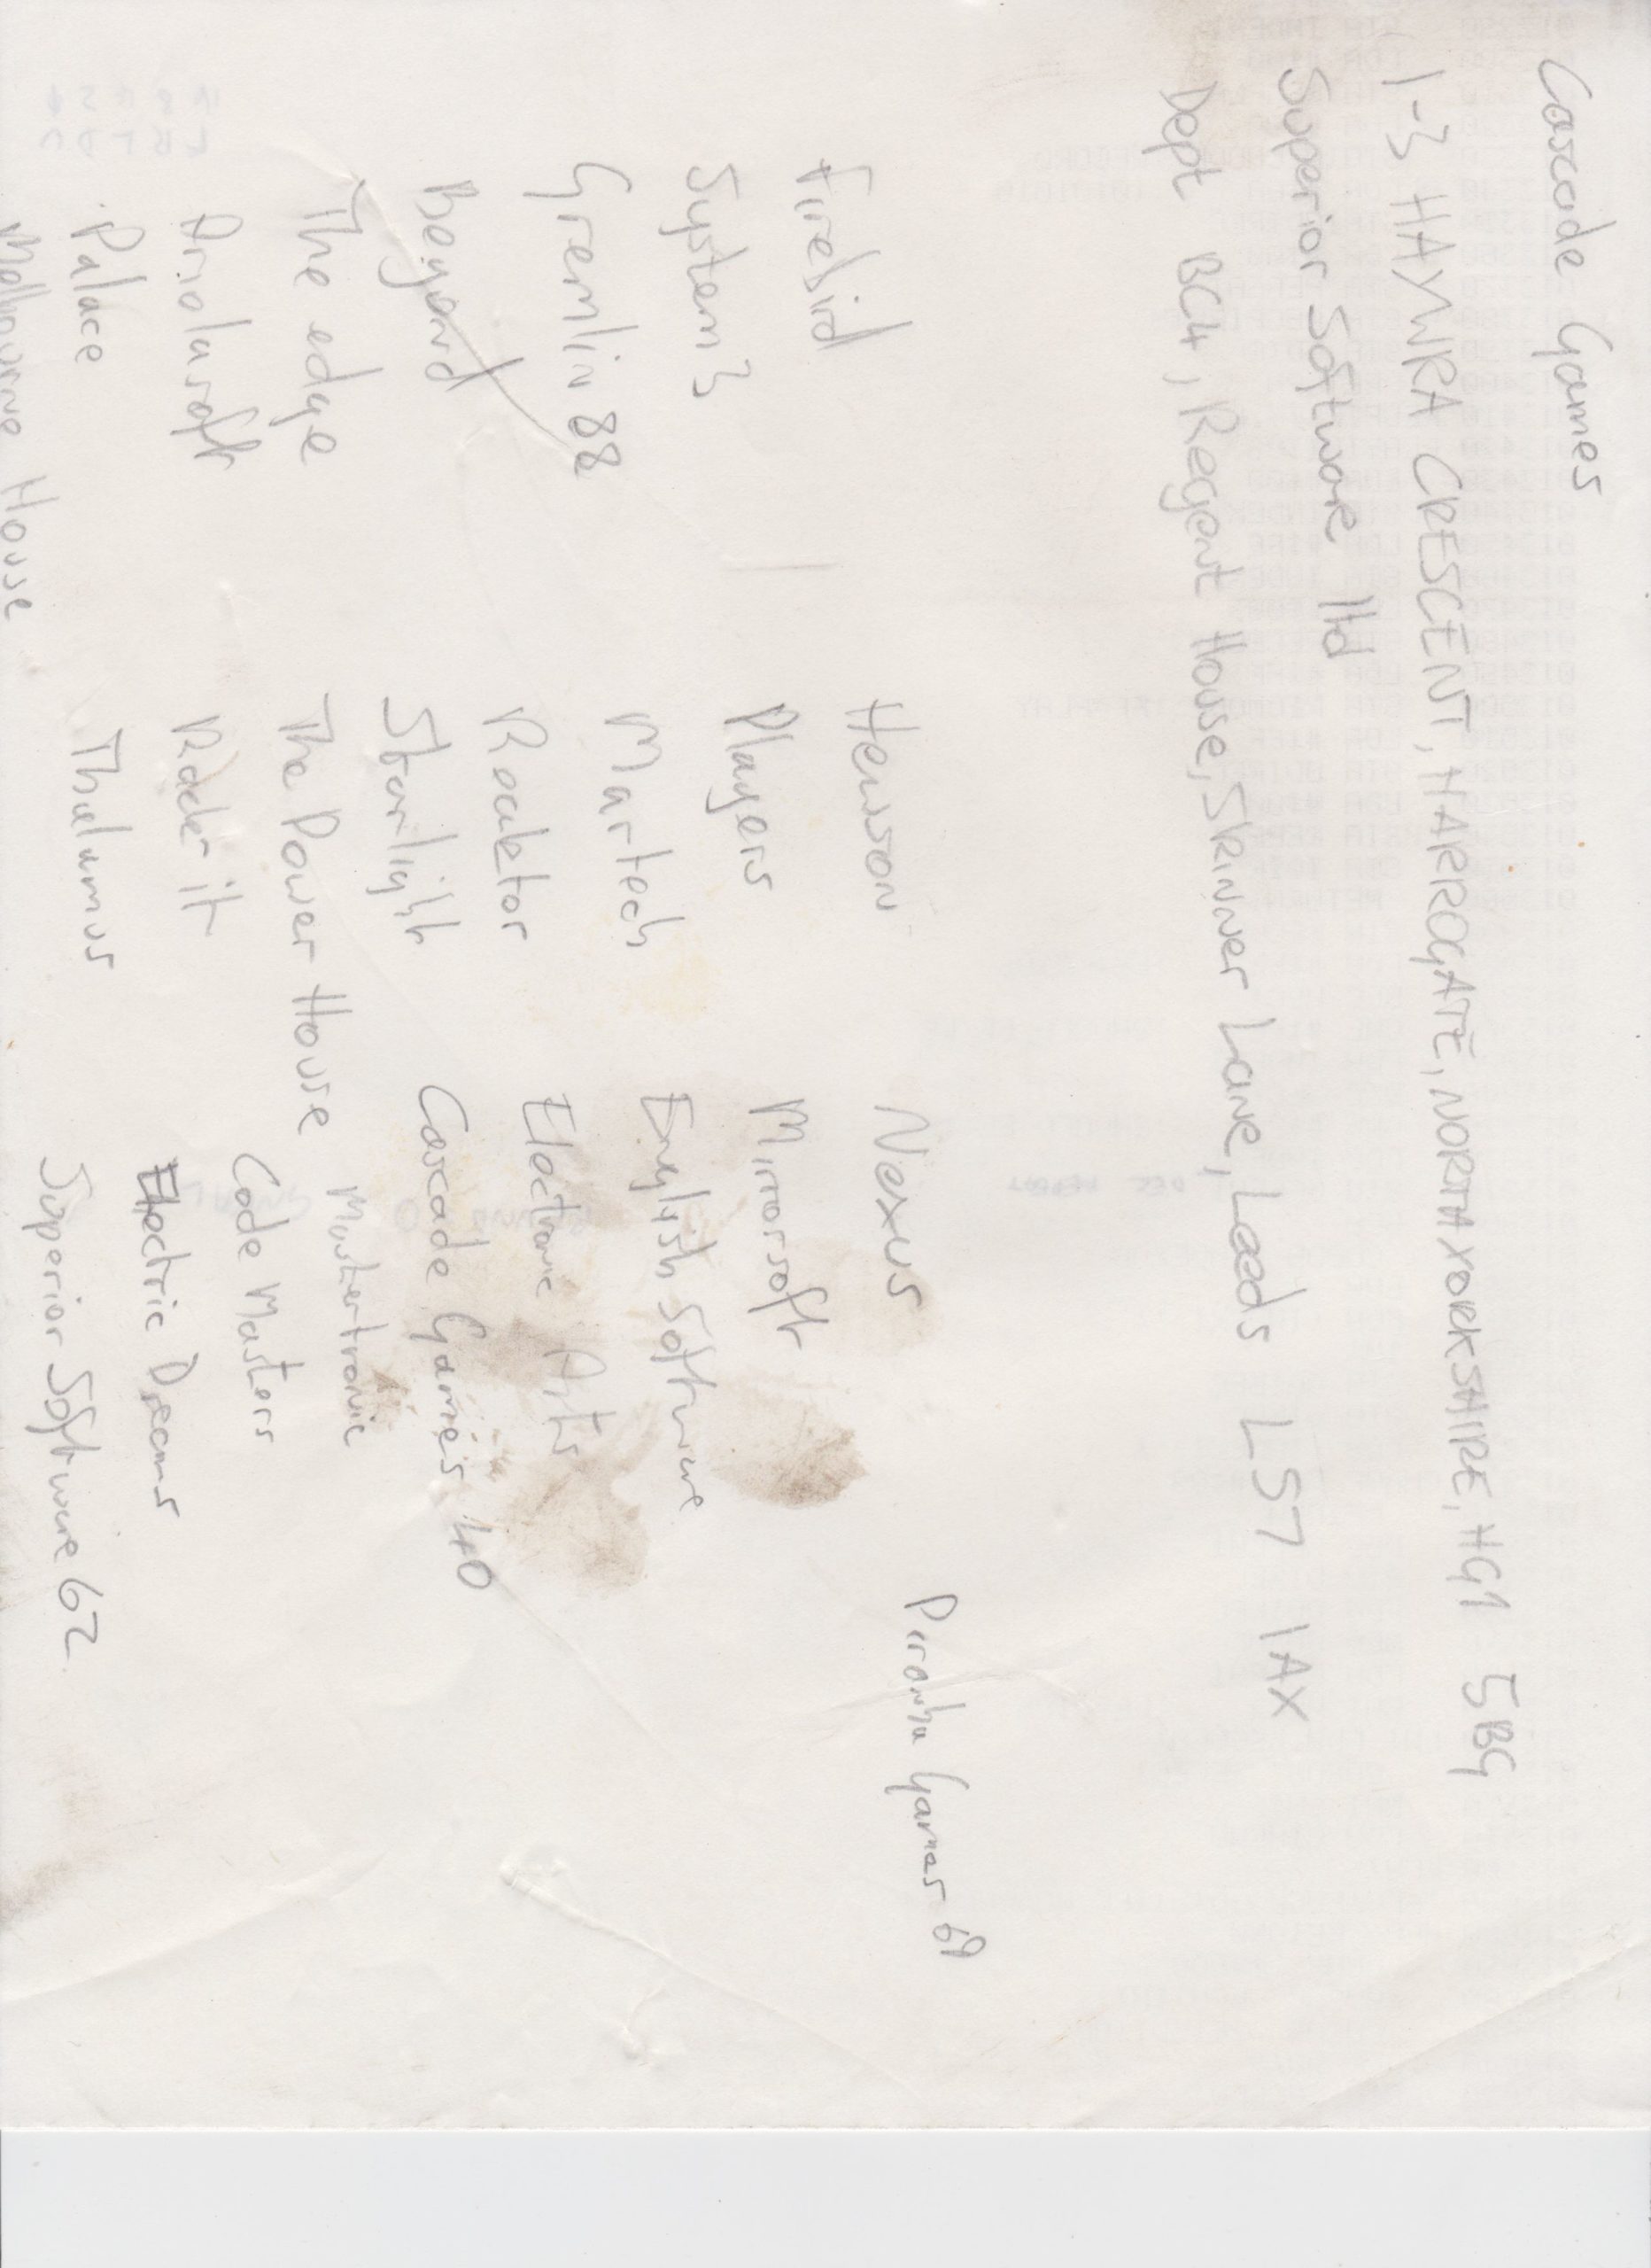 Cascade Games
1-3 HAYWRA CRESCENT, HARROGATE, NORTH YORKSHIRE, HG1 5BG
Superior Software ltd
Dept BC4, Regent House, Skinner Lane, Leeds LS7 1AX
Firebird
System 3
Gremlin 88
Beyond
The edge
Ariolasoft
Palace
Melbourne House
Hewson
Players
Martech
Reaktor
Starlight
The Power House
Rack-it
Thalamus
Nexus
Mirrorsoft
English Software
Electronic Arts
Cascade Games 40
Mastertronic
Code Masters
Electric Dreams
Superior Software 62
Piranha Games 69